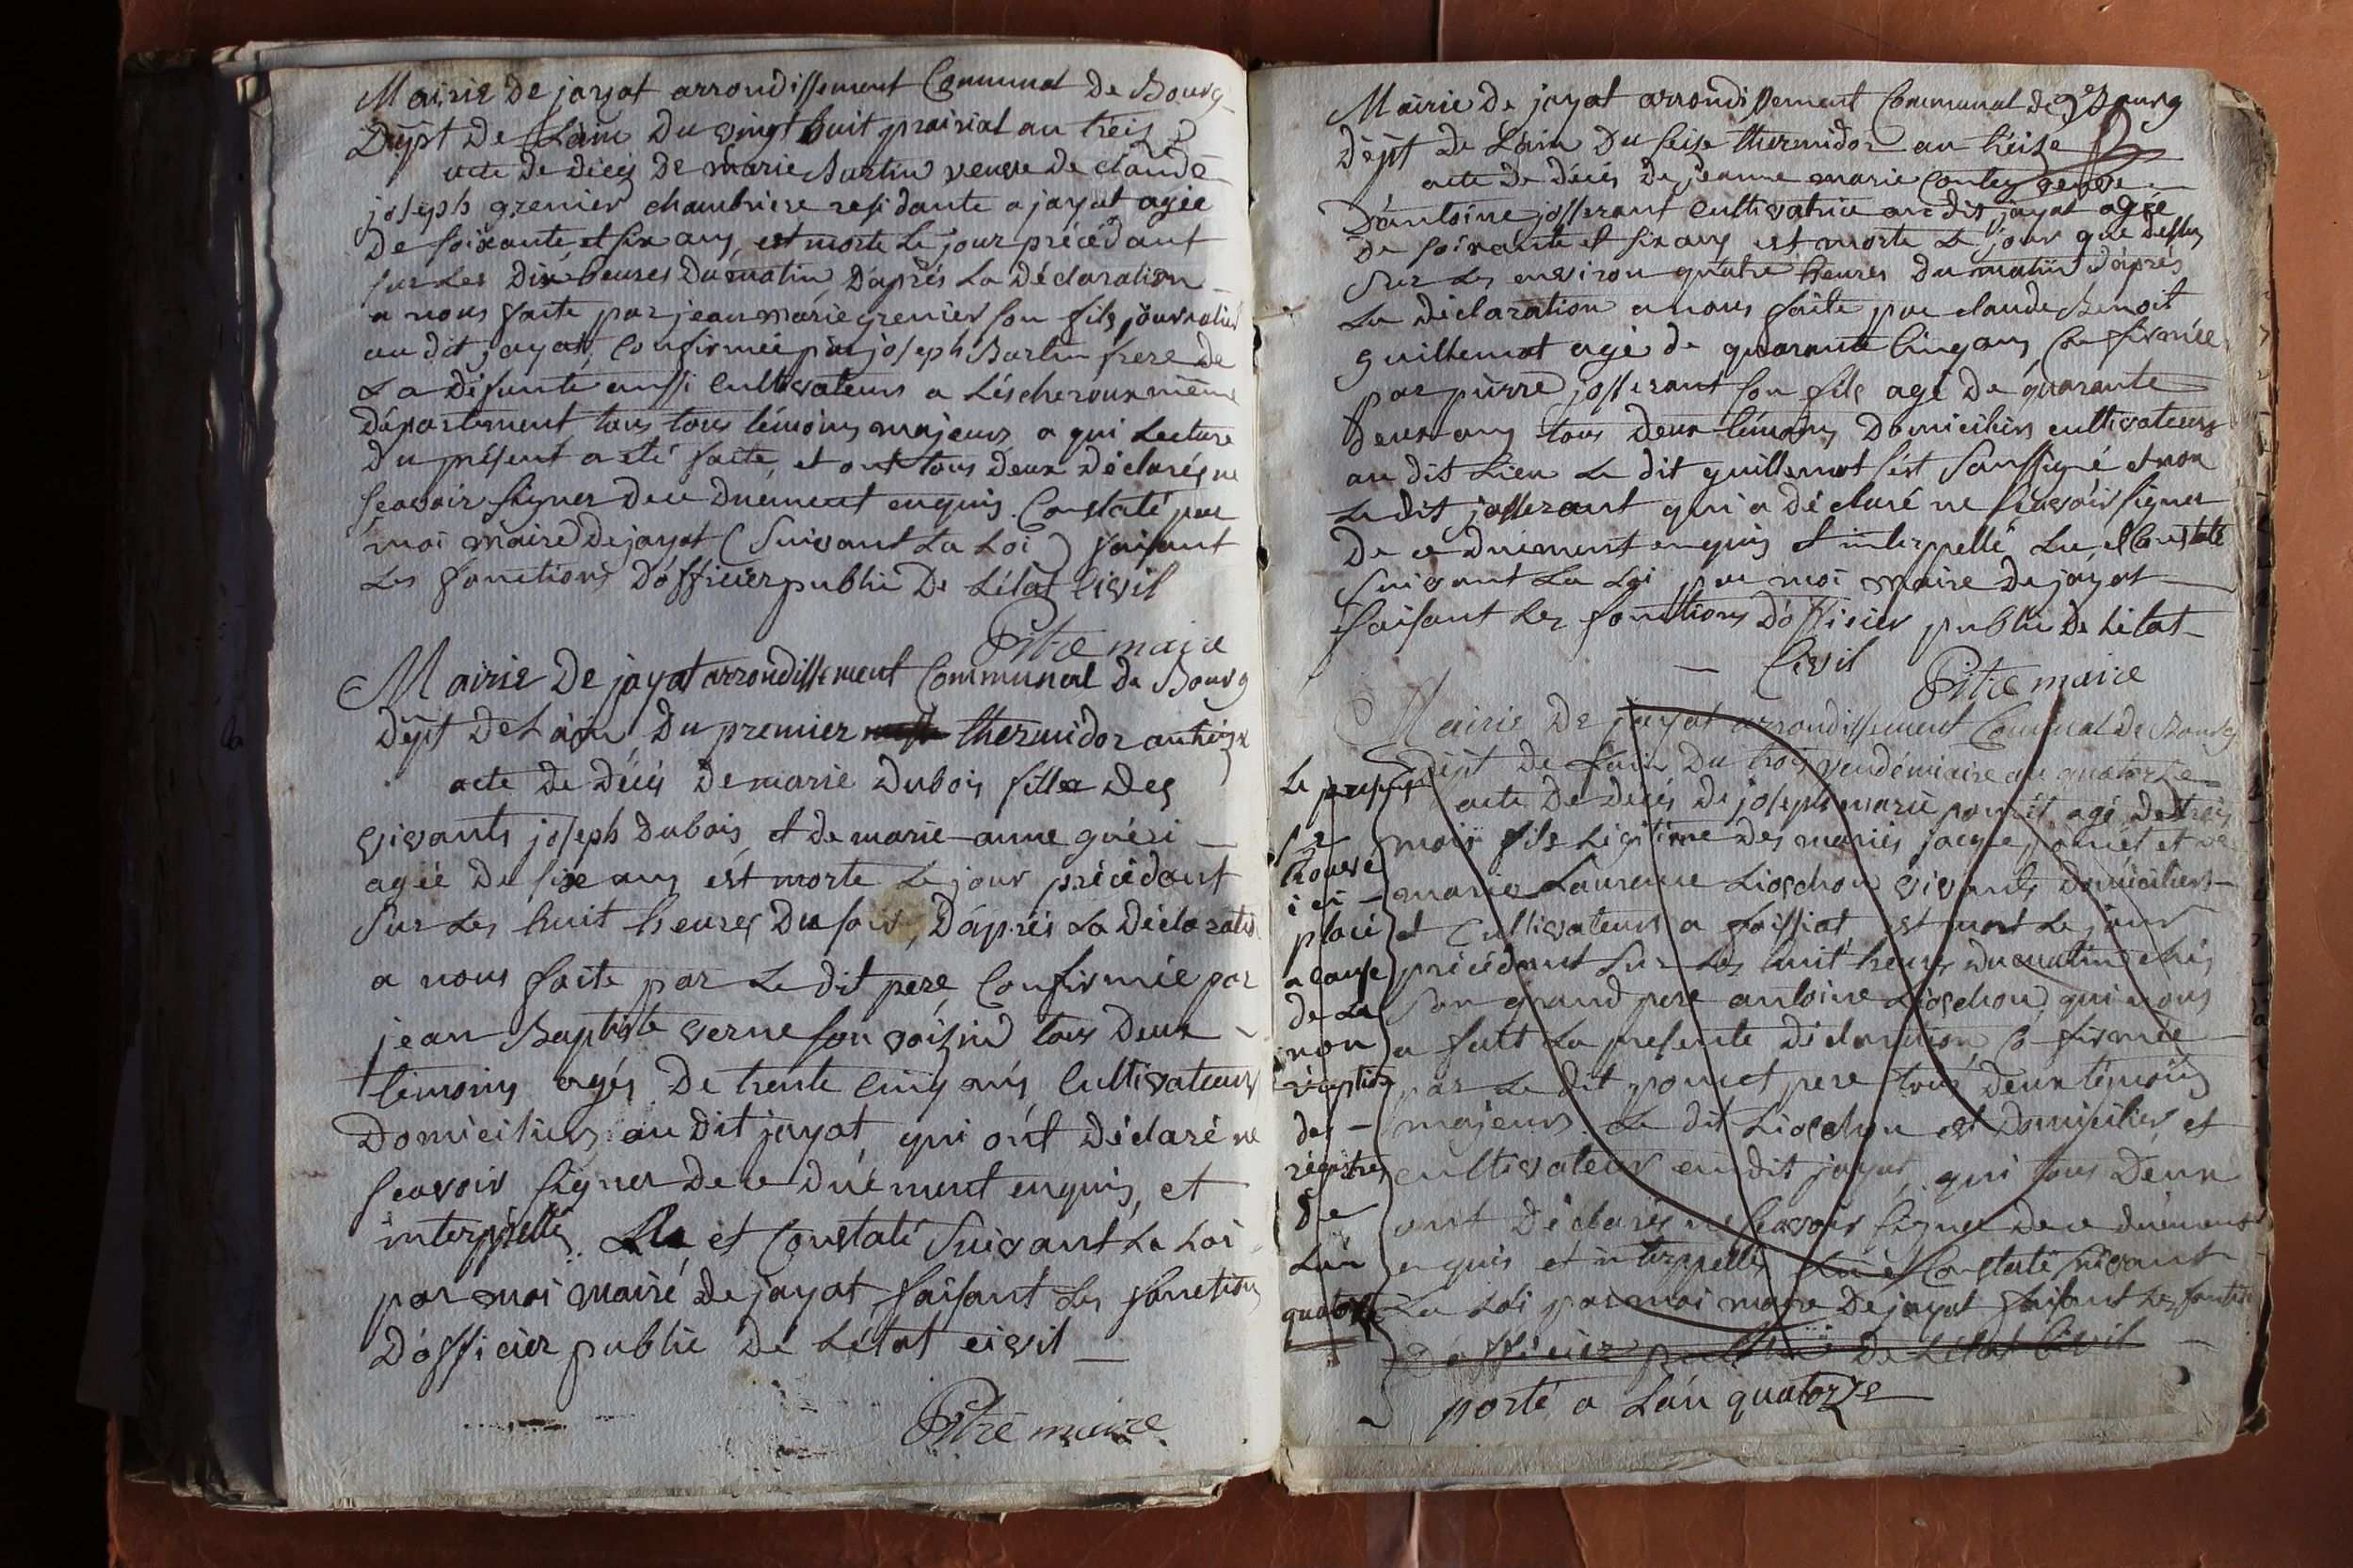 Mairie De jayat arrondissement Communal De Bourg
Dept De Lain Du vingt huit prairial an treis
acte De décés De marie Burtin veuve de claude
joseph grenier chambriere residante a jayat agée
De soixante et six ans, est morte le jour précédant
sur Les Dix heures Du matin, D'aprés La Déclaration
a nous faite par jean marie grenier son fils journalier
au dit jayat, Confirmée par joseph Burtin frere De
La défunte aussi Cultivateurs a Léscheroux même
Département tous tous témoins majeurs a qui Lecture
Du présent a été faite, et ont tous Deux Déclarés ne
scavoir signer De ce Duement enquis. Constaté par
moi maire De jayat (Suivant La Loi) faisant
Les fonctions D'officier public De L'état Civil
Pitre maire
Mairie De jayat arrondissement Communal De Bourg
Dept De Lain, Du premier thermidor an treize
acte De Décés De marie Dubois fille Des
vivants joseph Dubois, et de marie-anne guéri
agée De six ans, ést morte Le jour précédant
Sur Les huit heures Du soir, D'aprés La Déclaration
a nous faite par Le dit pere, Confirmée par
jean Baptiste verne son voisin tous Deux
témoins agés De trente cinq ans, Cultivateurs
Domiciliers au Dit jayat, qui ont Déclaré ne
scavoir signer De ce Duément enquis, et
interpellés. Lu et Constaté Suivant La Loi
par moi maire De jayat faisant Les fonctions
D'officier public De L'état civil
Pitre maire
Mairie De jayat arrondissement Communal de Bourg
Dept De Lain Du seise thermidor an treize
acte De Décés De jeanne marie veuve
D'antoine josserant Cultivatrice au dit jayat agée
De soixante et six ans est morte Le jour que dessus
Sur Les environ quatre heures Du matin d'aprés
La Déclaration a nous faite par claude Benoit
guillemot agé de quarante Cinq ans, Confirmée
par pierre josserant son fils agé De quarante
Deux ans tous Deux témoins Domiciliers cultivateurs
au dit Lieu Le dit guillemot s'est sousigné et non
Le dit josserant qui a Déclaré ne scavoir signer
De ce duément enquis et interppellé Lu, et Constaté
suivant La Loi par moi maire De jayat
faisant Les fonctions D'officier public De L'état
Civil Pitre maire
Mairie De jayat arrondissement Communal De Bourg
Dept De Lain Du trois vendémiaire an quatorze
acte De Décés De joseph marie poncet, agé De treis
mois fils Légitime Des mariés jacque poncet et de
marie Laurence Lioschon vivants Domiciliers
et Cultivateurs a foissiat, est mort Le jour
précédant Sur Les huit heures Du matin chés
Son grand pere antoine Lioschon, qui nous
a fait La présente Déclaration, Confirmée
par Le Dit poncet pere tous Deux témoins
majeurs. Le dit Lioschon est Domicilier et
cultivateur au dit jayat, qui tous Deux
ont Déclarés ne scavoir signer De ce duément
enquis et interppellés Lu et Constaté suivant
La Loi par moi maire De jayat faisant Les fonctions
D'officier public De L'état Civil
porté a L'an quatorze
Le present
se
trouve
ici
placé
a cause
de La
non
réception
des
régistres
de
L'an
quatorze